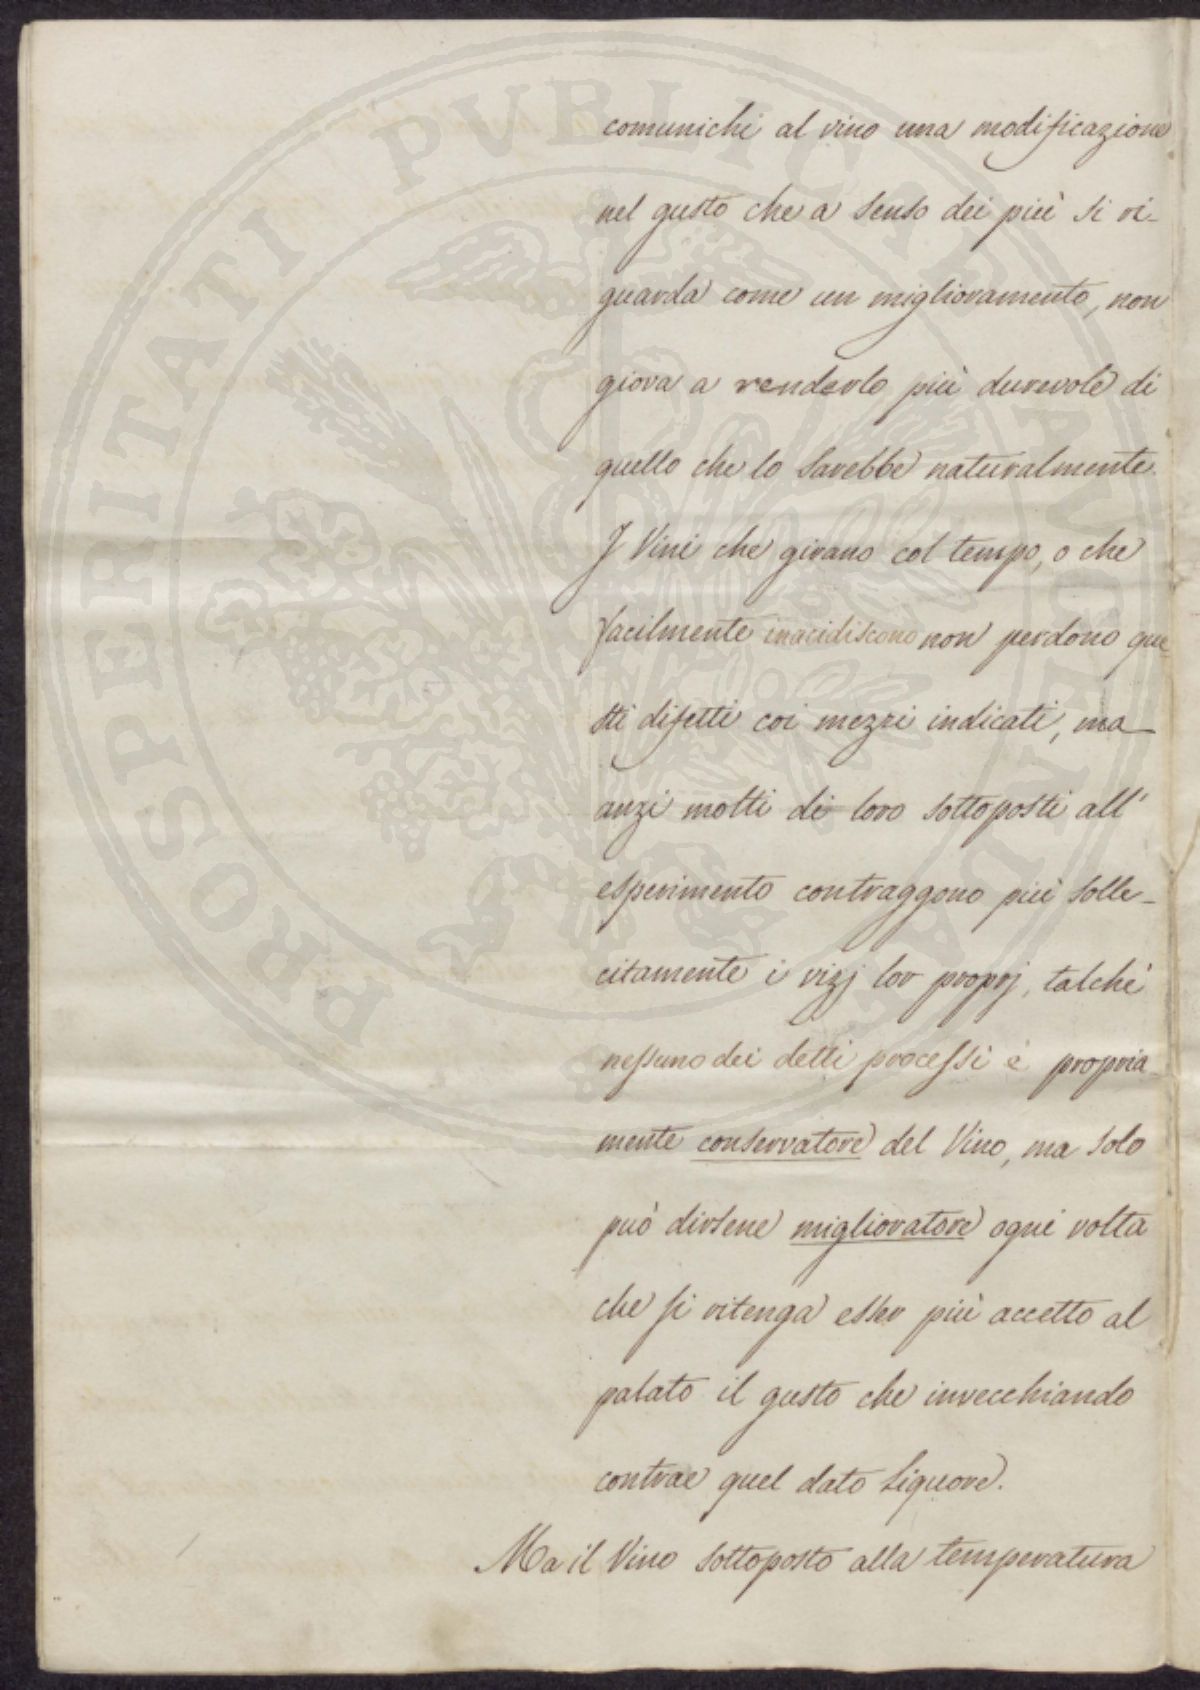 comunichi al vino una modificazione
nel gusto che a senso dei più si ri-
guarda come un miglioramento, non
giova a renderlo più durevole di
quello che lo sarebbe naturalmente.
I Vini che girano col tempo, o che
facilmente inacidiscono non perdono que-
sti difetti coi mezzi indicati, ma
anzi molti di loro sottoposti all'
esperimento contraggono più solle-
citamente i vizj lor proprj, talchè
nessuno dei detti processi è propria-
mente conservatore del Vino, ma solo
può dirsene miglioratore ogni volta
che si ritenga esser più accetto al
palato il gusto che invecchiando
contrae quel dato liquore.
Ma il Vino sottoposto alla temperatura
PROSPERITATI PUBLICAE AUGENDAE